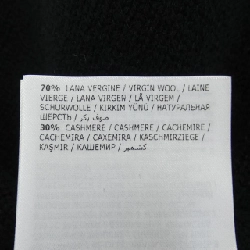 70% LANA VERGINE / VIRGIN WOOL / LAINE
VIERGE / LANA VIRGEN / LÃ VIRGEM /
SCHURWOLLE / KIRKIM YÜNÜ / НАТУРАЛЬНАЯ
ШЕРСТЬ / صوف بكر /
30% CASHMERE / CASHMERE / CACHEMIRE /
CACHEMIRA / CAXEMIRA / KASCHMIRZIEGE /
KAŞMİR / КАШЕМИР / كشمير /